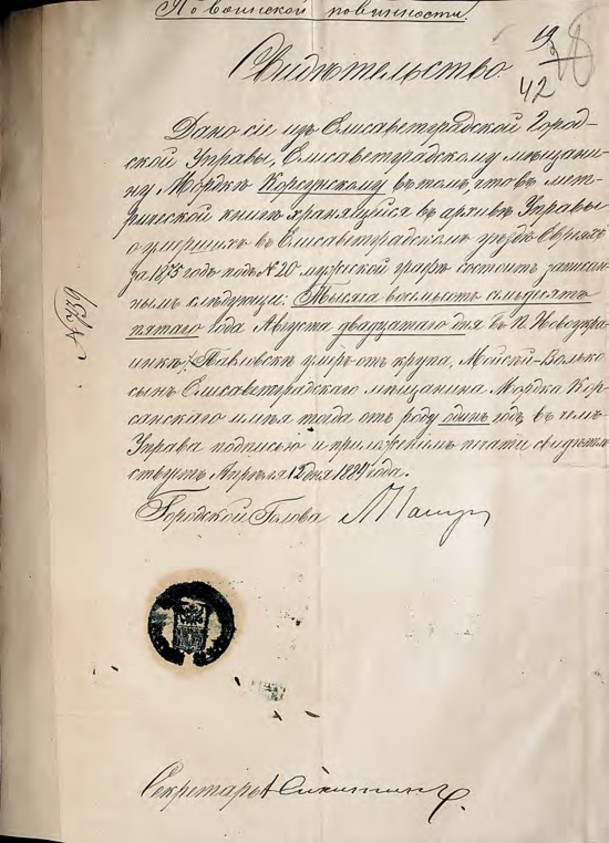 По воинской повинности.
19
42
Свидѣтельство.
Дано сіе изъ Елисаветградской Город-
ской Управы, Елисаветградскому мѣщани-
ну Мордкѣ Корсунскому въ томъ, что въ мет-
рической книгѣ хранящейся въ архивѣ Управы
о умершихъ въ Елисаветградскомъ уѣздѣ Евреяхъ
за 1875 годъ подъ № 20 мужеской графѣ состоитъ записан-
нымъ слѣдующее: Тысяча восемьсотъ семьдесятъ
пятаго года Августа двадцатаго дня въ п. Новоукра-
инкѣ/Павловскѣ умеръ отъ крупа, Мойсей-Волько
сынъ Елисаветградскаго мѣщанина Мордка Кор-
санскаго имѣя тогда отъ роду одинъ годъ, въ чемъ
Управа подписью и приложеніемъ печати свидѣтель-
ствуетъ Апрѣля 12 дня 1884 года.
Городской Голова
Секретарь